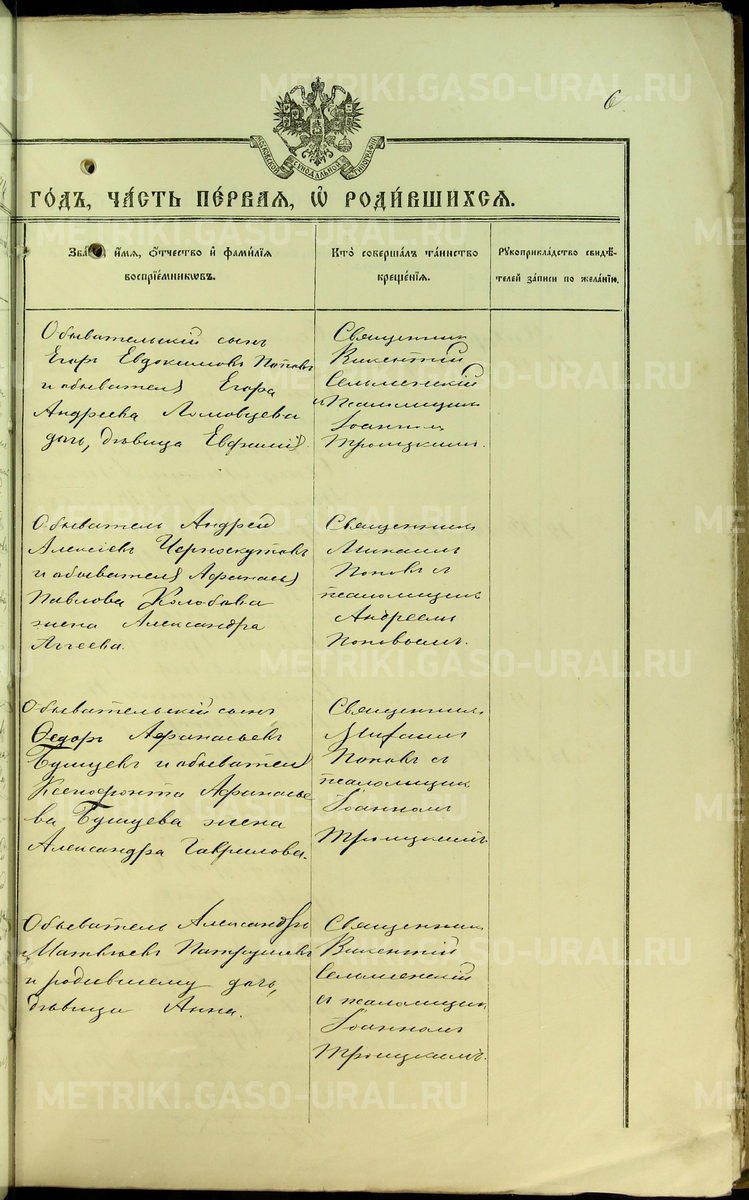 METRIKI.GASO-URAL.RU
6
МОСКОВСКОЙ СѴНОДАЛЬНОЙ ТИПОГРАФІИ
ГО́ДЪ, ЧА́СТЬ ПЕ́РВАЯ, Ѽ РОДИ́ВШИХСЯ.
и҆́мя, ѻ҆́тчество и҆ фами́лїя
воспрїе́мникѡвъ.
Кто̀ соверша́лъ та́инство
креще́нїя.
Рꙋкоприкла́дство свидѣ́-
телей за́писи по жела́нїю.
Обывательскій сынъ
Егоръ Евдокимовъ Поповъ
и обывателя Егора
Андреева Ломовцева
дочь, дѣвица Евфимія.
Священникъ
Викентій
Сельменскій
и Псаломщикъ
Іоаннъ
Троицкимъ.
Обыватель Андрей
Алексіевъ Черноскутовъ
и обывателя Афанасія
Павлова Колобова
жена Александра
Аггеева.
Священникъ
Михаилъ
Поповъ съ
псаломщикъ
Андреемъ
Поповымъ.
Обывательскій сынъ
Ѳедоръ Афанасьевъ
и обывателя
Ксенофонта Афанасье
ва жена
Александра Гаврилова.
Священникъ
Михаилъ
Поповъ съ
псаломщик
Іоанномъ
Троицкимъ.
Обыватель Александръ
Матвѣевъ Патрушевъ
и родившему дочь,
дѣвица Анна.
Священникъ
Викентій
Сельменскій
и псаломщик
Іоанномъ
Троицкимъ.
METRIKI.GASO-URAL.RU